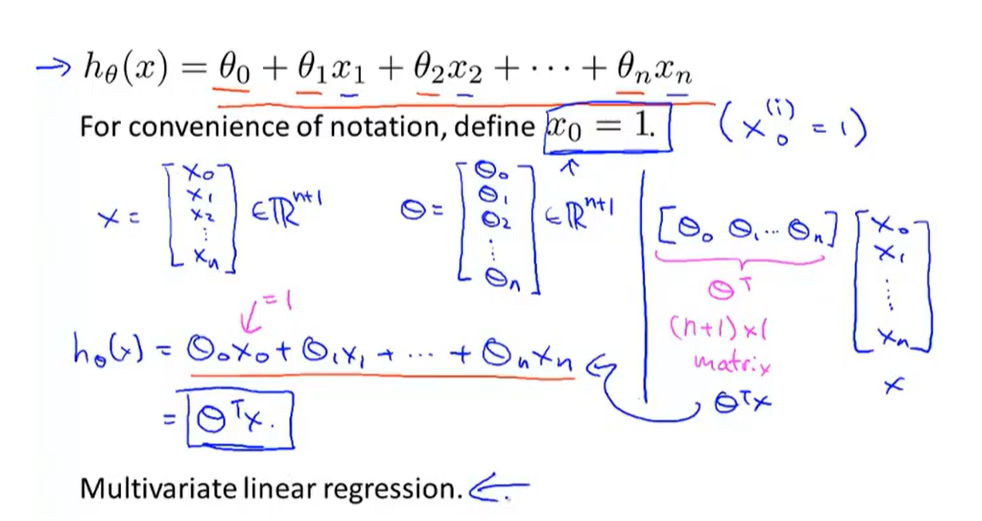 → hθ(x) = θ₀ + θ₁x₁ + θ₂x₂ + ··· + θₙxₙ
For convenience of notation, define x₀ = 1. (x₀⁽ⁱ⁾ = 1)
x = [x₀ x₁ x₂ ⋮ xₙ] ∈ ℝⁿ⁺¹ θ = [θ₀ θ₁ θ₂ ⋮ θₙ] ∈ ℝⁿ⁺¹
[θ₀ θ₁ ··· θₙ] [x₀ x₁ ⋮ xₙ]
θᵀ
(n+1) × 1
matrix
x
θᵀx
= 1
hθ(x) = θ₀x₀ + θ₁x₁ + ··· + θₙxₙ
= θᵀx.
Multivariate linear regression. ←